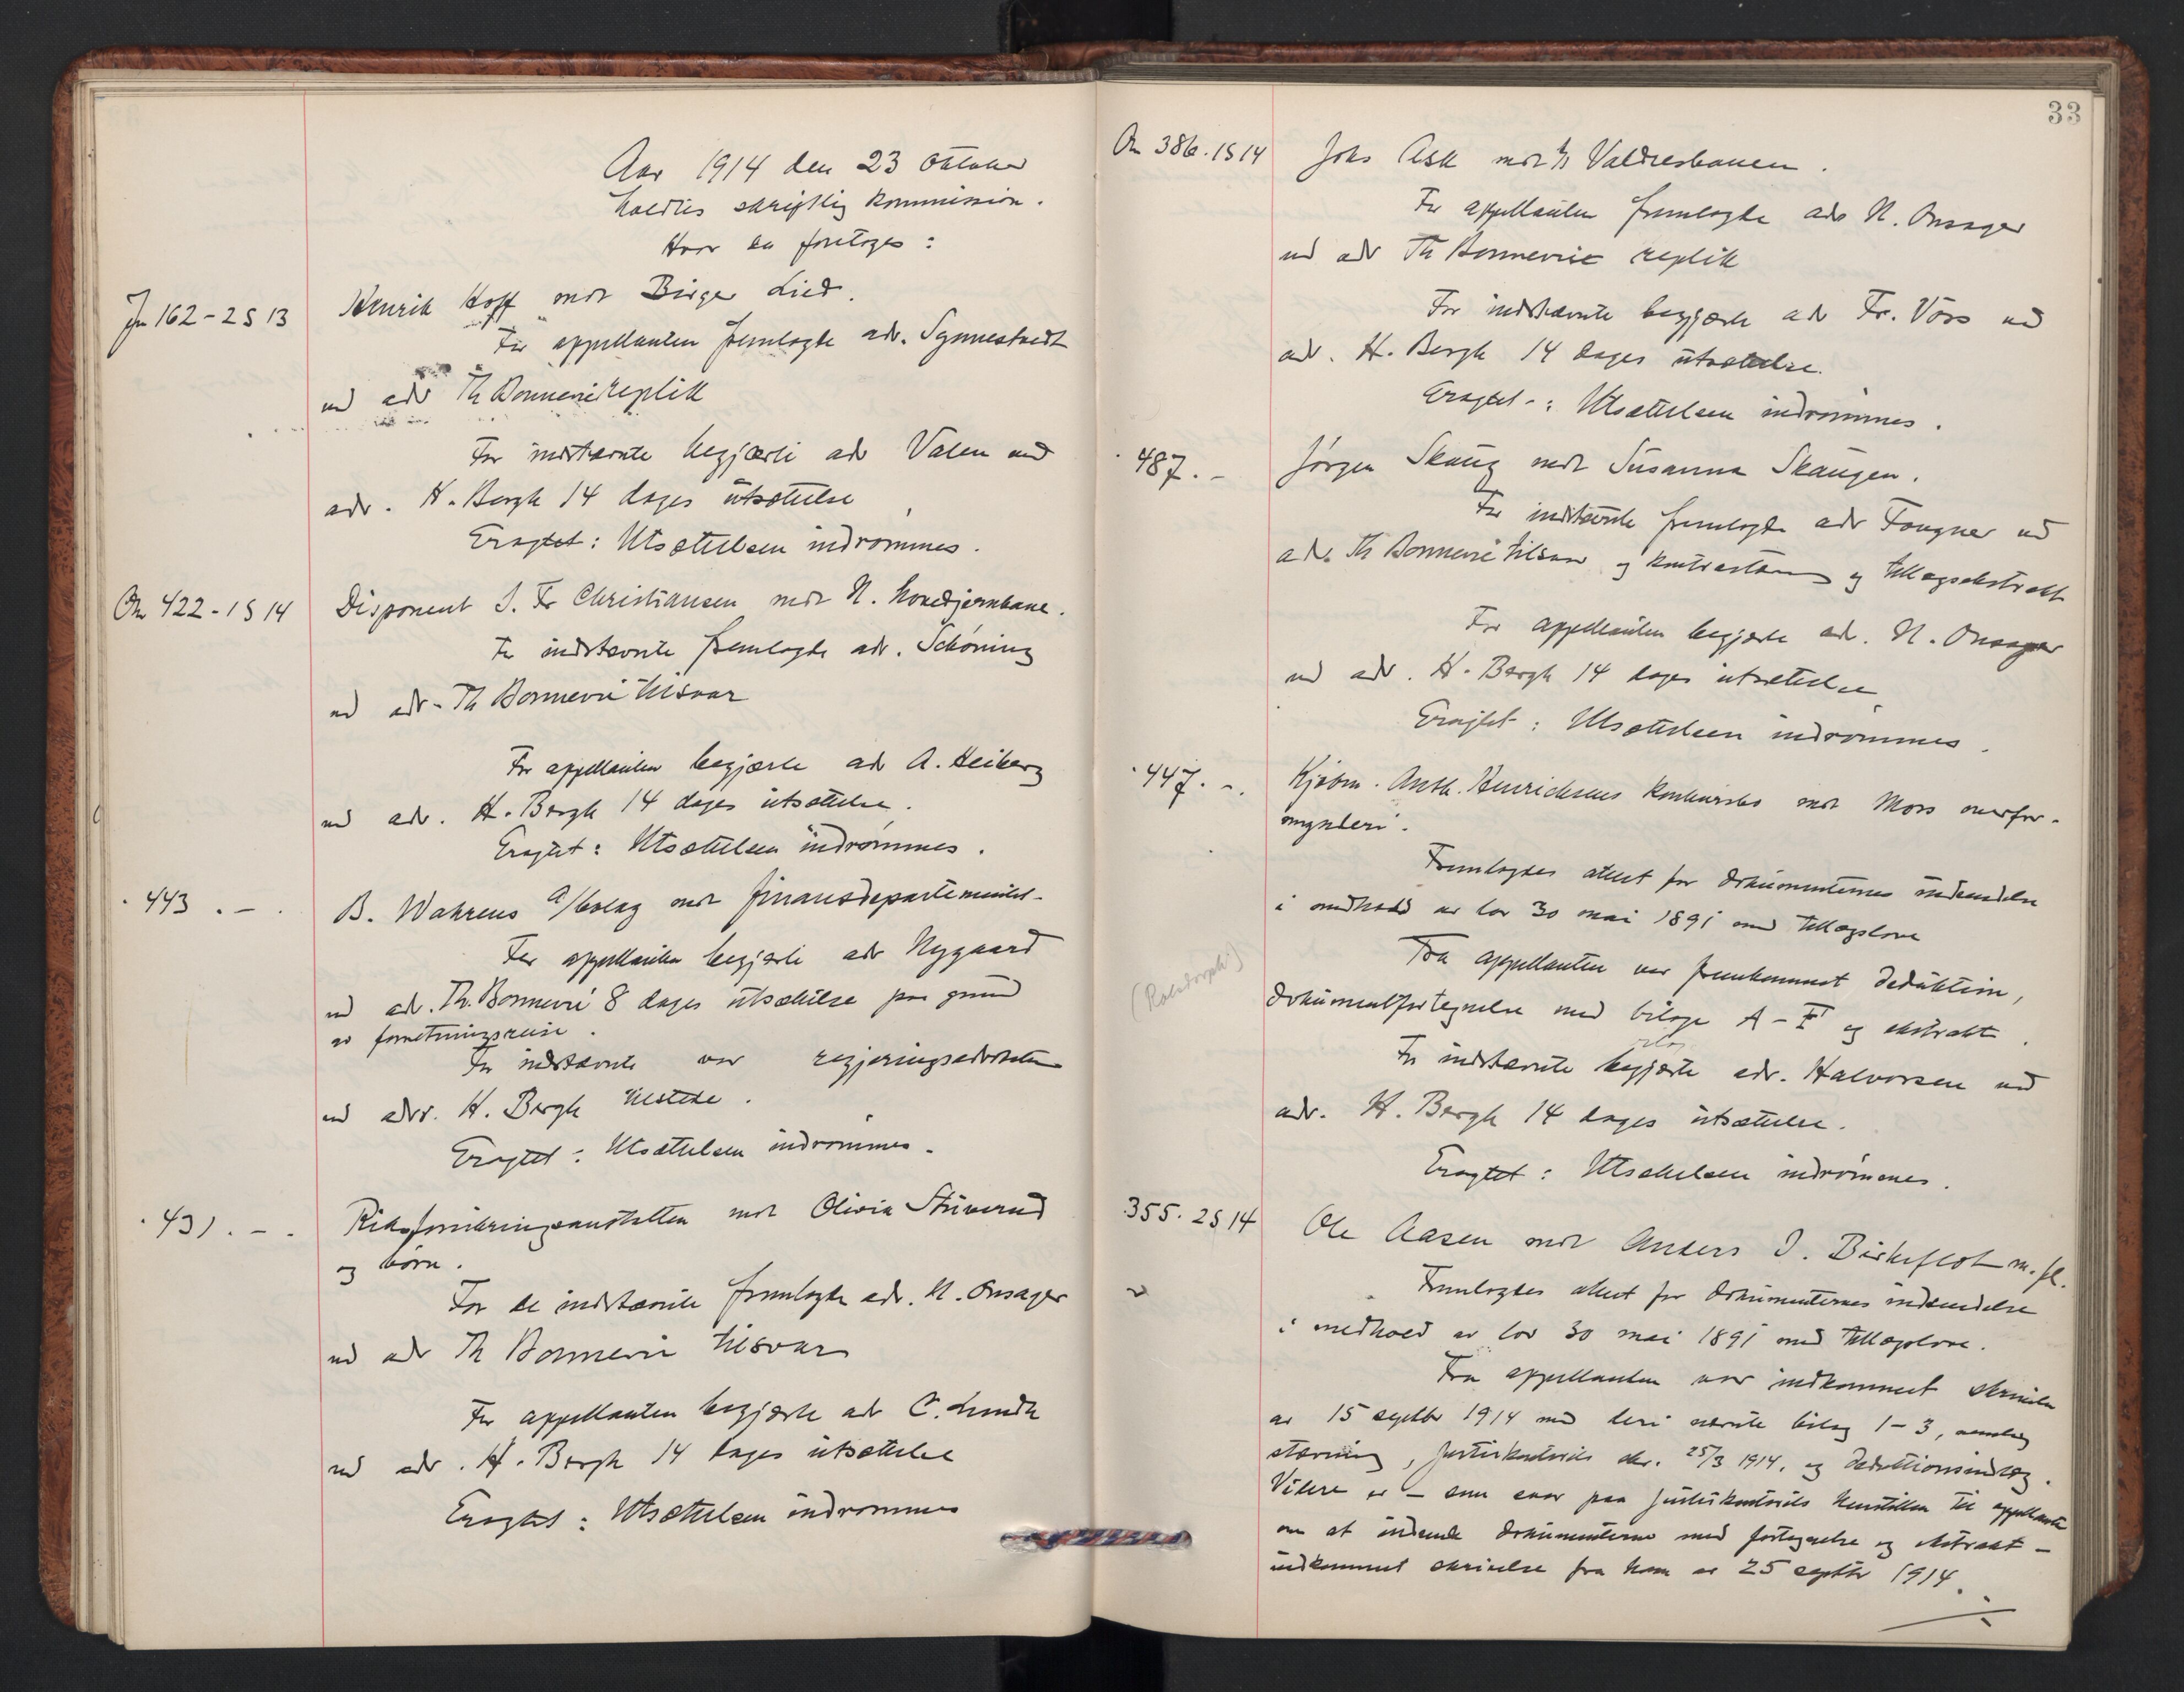 Aar 1914 den 23 oktober
holdtes skriftlig kommission.
Hvor da foretoges:
Jn 162 - 2 S 13
Henrik Hoff mot Birger Lied.
For appellanten fremlagde adv. Synnestvedt
ved adv Th Bonnevie replik
For indstævnte begjærte adv Valen ved
adv. H. Bergh 14 dages utsættelse
Eragtet: Utsættelsen indrømmes.
On 422 - 1 S 14
Disponent J. Fr Christiansen mot N. hovedjernbane.
For indstævnte fremlagde adv. Schöning
ved adv. Th Bonnevie tilsvar
For appellanten begjærte adv A. Heiberg
ved adv. H. Bergh 14 dages utsættelse.
Eragtet: Utsættelsen indrømmes.
443 . - .
B. Wahrens a/bolag mot Finansdepartementet.
For appellanten begjærte adv Nygaard
ved adv. Th. Bonnevie 8 dages utsættelse paa grund
av forretningsreise.
For indstævnte var regjeringsadvokaten
ved adv. H. Bergh tilstede.
Eragtet: Utsættelsen indrømmes.
431 . - .
Riksforsikringsanstalten mot Olivia Stuverud
og børn.
For de indstævnte fremlagde adv. N. Onsager
ved adv Th Bonnevie tilsvar
For appellanten begjærte adv C. Lundh
ved adv. H. Bergh 14 dages utsættelse
Eragtet: Utsættelsen indrømmes
33
On 386. 1 S 14
Johs Ask mot Valdresbanen.
For appellanten fremlagde adv N. Onsager
ved adv Th Bonnevie replik
For indstævnte begjærte adv Fr. Voss ved
adv. H. Bergh 14 dages utsættelse.
Eragtet: Utsættelsen indrømmes.
487. -
Jörgen Skaug mot Susanna Skaugen.
For indstævnte fremlagde adv Fougner ved
adv. Th Bonnevie tilsvar og kontrastævn og tillægsekstrakt
For appellanten begjærte adv. N. Onsager
ved adv. H. Bergh 14 dages utsættelse
Eragtet: Utsættelsen indrømmes.
447. - .
Kjøbm. Anth. Henrichsens konkursbo mot Moss overfor-
mynderi.
Fremlagdes attest for dokumenternes indsendelse
i medhold av lov 30 mai 1891 med tillægslove
Fra appellanten var fremkommet deduktion,
dokumentfortegnelse med bilage A - F og ekstrakt.
For indstævnte begjærte adv. Halvorsen ved
adv. H. Bergh 14 dages utsættelse.
Eragtet: Utsættelsen indrømmes.
355. 2 S 14
Ole Aasen mot Anders J. Birkeflot m. fl.
Fremlagdes attest for dokumenternes indsendelse
i medhold av lov 30 mai 1891 med tillægslove.
Fra appellanten var indkommet skrivelse
av 15 septbr 1914 med deri nævnte bilag 1 - 3, nemlig
stævning, justiskontorets skr. 25/3 1914, og deduktionsindlæg.
Videre er - som svar paa justiskontorets henstillen til appellanten
om at indsende dokumenterne med fortegnelse og ekstrakt -
indkommet skrivelse fra ham av 25 septbr 1914.